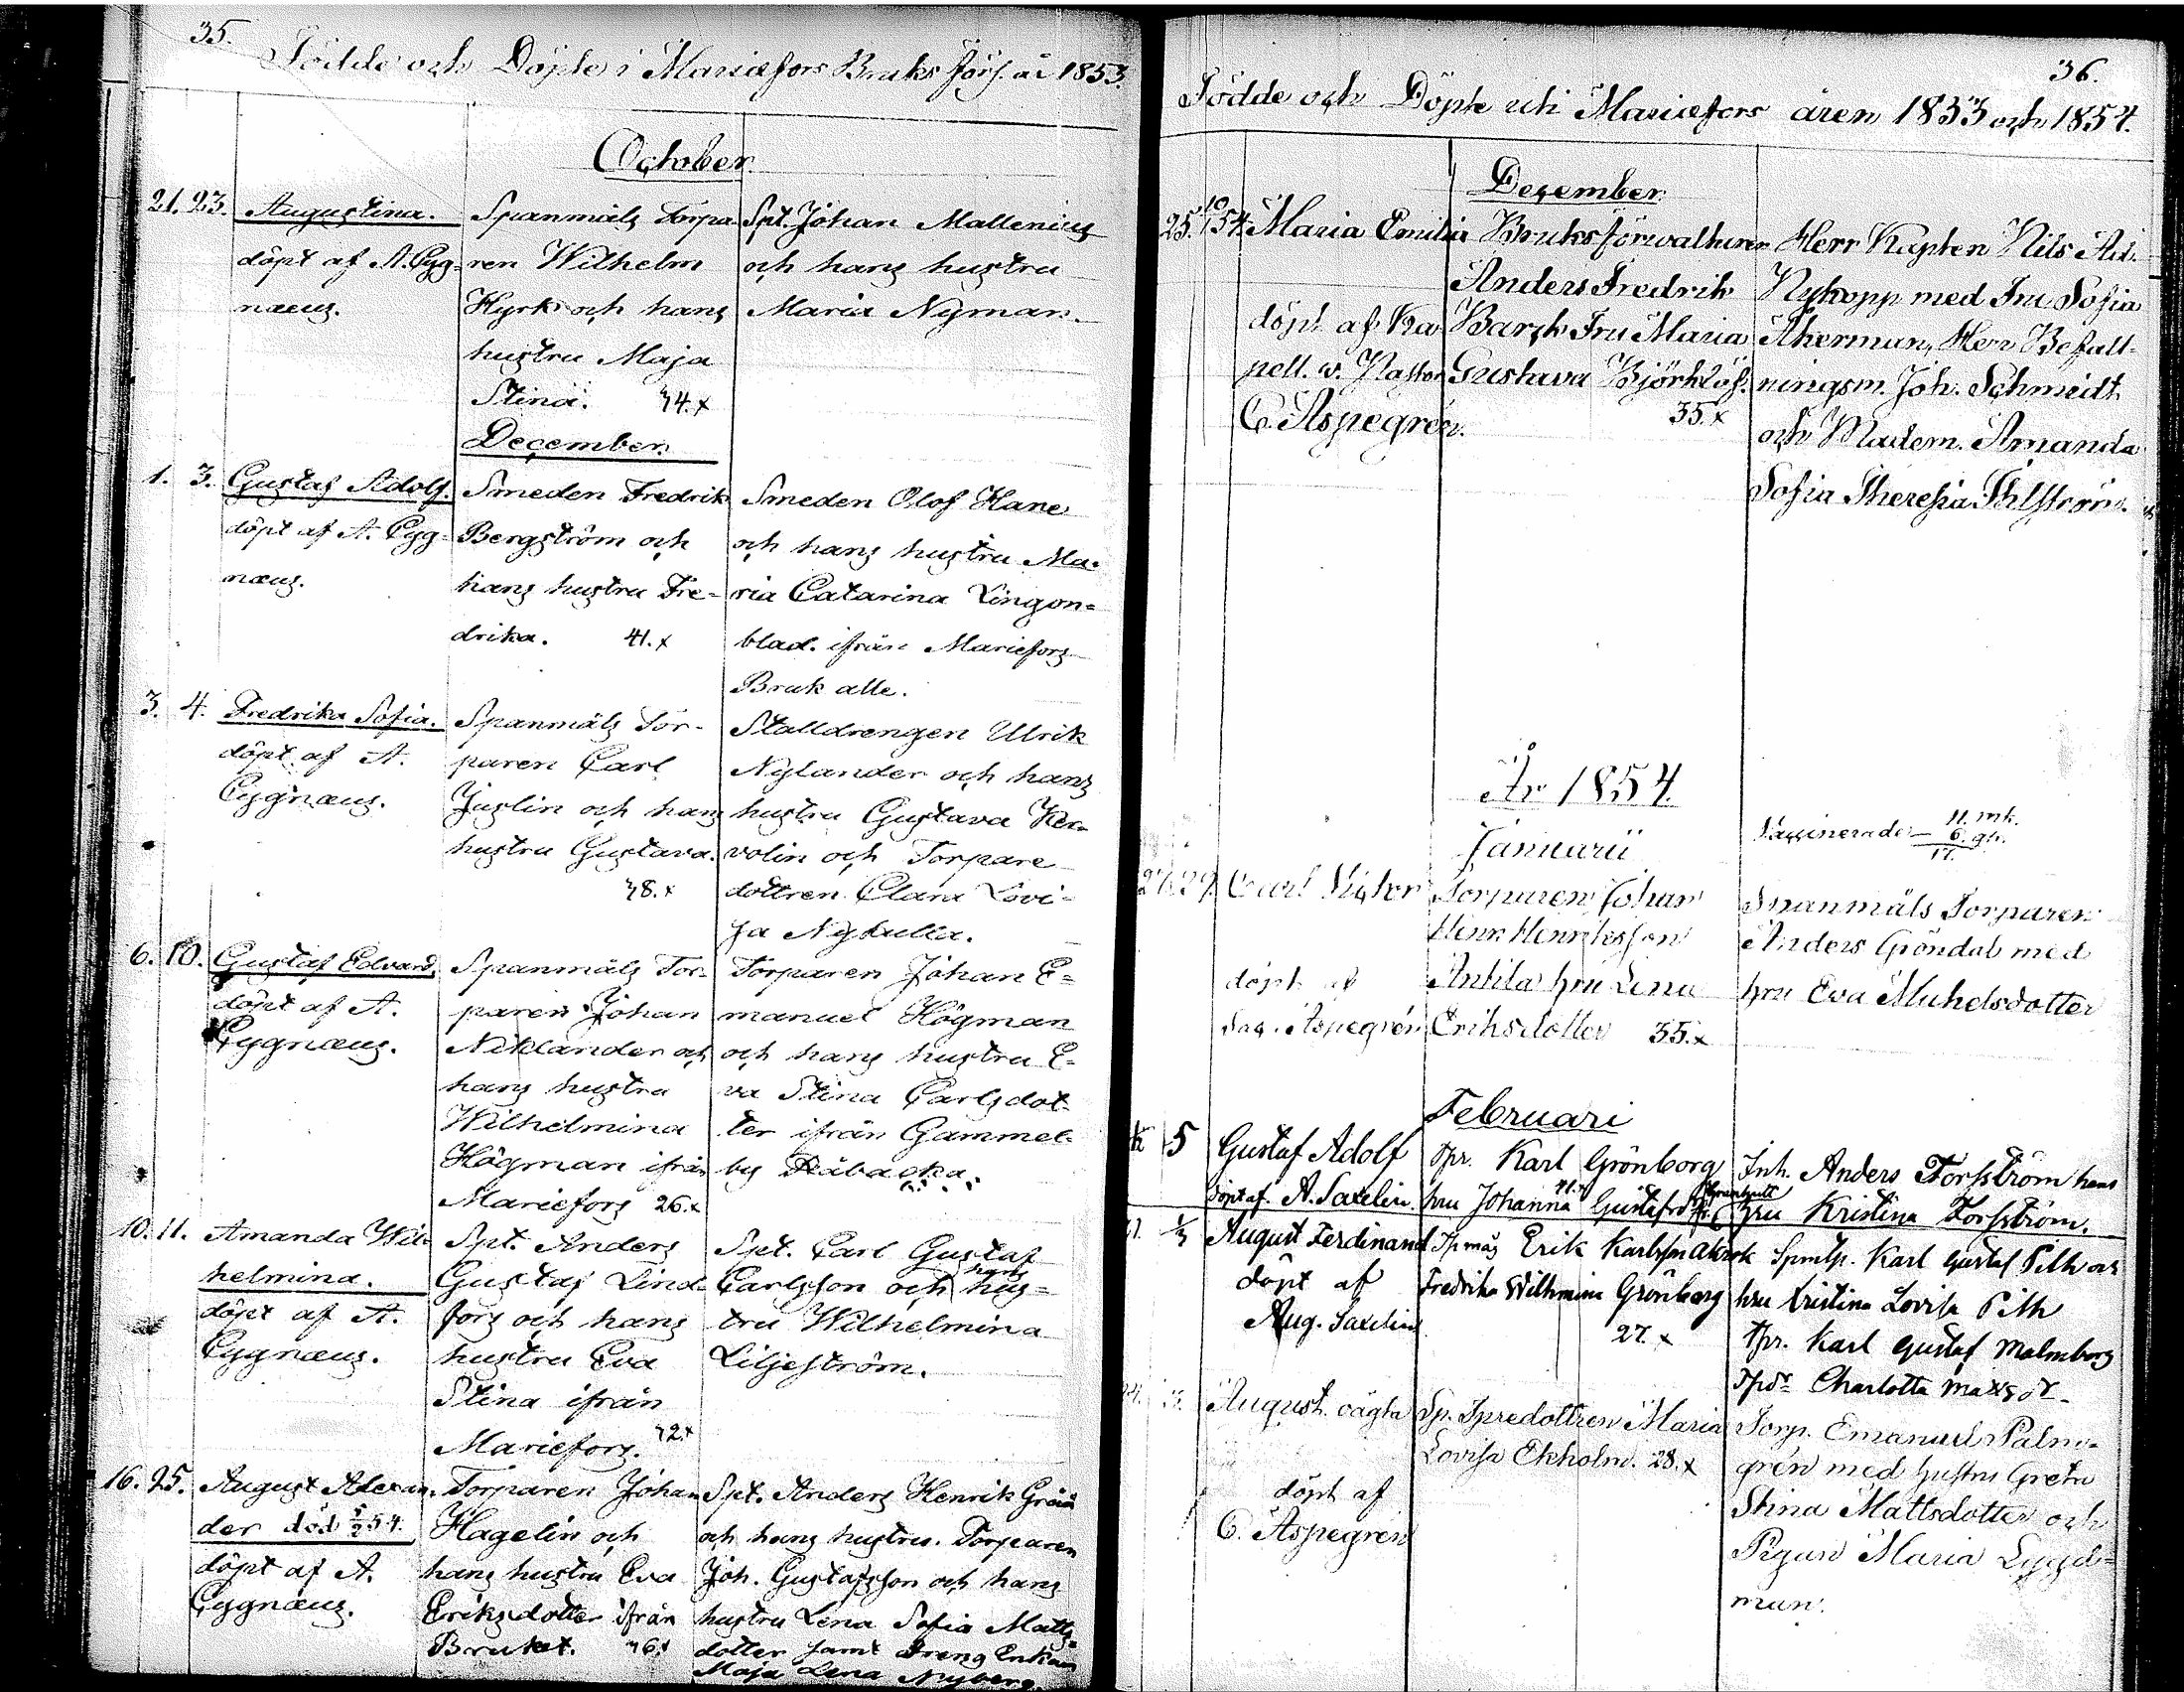 35.
Födde och Döpte i Mariæfors Bruks Förs. år 1853.
October.
21. 23. Augustina.
döpt af A. Cyg-
næus.
Spanmåls Torpa-
ren Wilhelm
Hyrk och hans
hustru Maja
Stina. 44.x
Spt. Johan Mallenius
och hans hustru
Maria Nyman.
December.
1. 3. Gustaf Adolf.
döpt af A. Cyg-
næus.
Smeden Fredrik
Bergström och
hans hustru Fre-
drika. 41.x
Smeden Olof Hane
och hans hustru Ma-
ria Catarina Lingon-
blad. ifrån Mariefors
Bruk alle.
3. 4. Fredrika Sofia.
döpt af A.
Cygnæus.
Spanmåls Tor-
paren Carl
Juslin och hans
hustru Gustava.
48.x
Stalldrengen Ulrik
Nylander och hans
hustru Gustava Ker-
volin och Torpare
dottren Clara Lovi-
sa Nykulla.
6. 10. Gustaf Edvard.
döpt af A.
Cygnæus.
Spanmåls Tor-
paren Johan
Neklander och
hans hustru
Wilhelmina
Högman ifrån
Mariefors 26.x
Torparen Johan E-
manuel Högman
och hans hustru E-
va Stina Carlsdot-
ter ifrån Gammel-
by Råbacka.
10. 11. Amanda Wil-
helmina.
döpt af A.
Cygnæus.
Spt. Anders
Gustaf Lind-
fors och hans
hustru Eva
Stina ifrån
Mariefors. 42.x
Spt. Carl Gustaf
Carlsson och hans hus-
tru Wilhelmina
Liljeström.
16. 25. August Alexan-
der död 5/2 54.
döpt af A.
Cygnæus.
Torparen Johan
Hagelin och
hans hustru Eva
Eriksdotter ifrån
Bruket. 46.x
Spt. Anders Henrik
och hans hustru. Torparen
Joh. Gustafsson och hans
hustru Lena Sofia Matts-
dotter samt Dreng Enkan
Maja Lena Nyberg.
36.
Födde och Döpte uti Mariæfors åren 1853 och 1854.
December.
25. 10/1 54. Maria Emilia
döpt af Ka-
pell. v. Pastor
C. Aspegrén.
Bruksförwaltaren
Anders Fredrik
Barck Fru Maria
Gustava Björklöf.
35.x
Herr Kapten Nils Ad.
Nykopp med Fru Sofia
Åkerman, Herr Befall-
ningsm. Joh. Schmidt
och Madem. Amanda
Sofia Theresia Ahlström.
År 1854.
Januarii
Vaccinerade 11. mk.
6. qk.
17.
27. 29. Carl Victor
döpt af
Sac. Aspegrén
Torparen Johan
Henr Henriksson
Antila hru Lena
Eriksdotter 35.x
Spanmåls Torparen
Anders Gröndal med
hru Eva Michelsdotter
Februari
5 Gustaf Adolf
döpt af. A. Saxelin.
Tpr. Karl Grönborg
hru Johanna 41.x Gustafsdr
Inh. Anders Forsström hans
hru Kristina Forsström.
August Ferdinand
döpt af
Aug. Saxelin
Spmåls Erik Karlsson
Fredrika Wilhmina Grönberg
27.x
Spmtp. Karl Gustaf Pith och
hru Kristina Lovisa Pith
Tpr. Karl Gustaf Malmborg
Tpdr Charlotta Matsdr
August. oägta
döpt af
C. Aspegrén
Sp. Tpredottren Maria
Lovisa Ekholm. 28.x
Torp. Emanuel Palm-
grén med hustru Greta
Stina Mattsdotter och
Pigan Maria Lygd-
man.